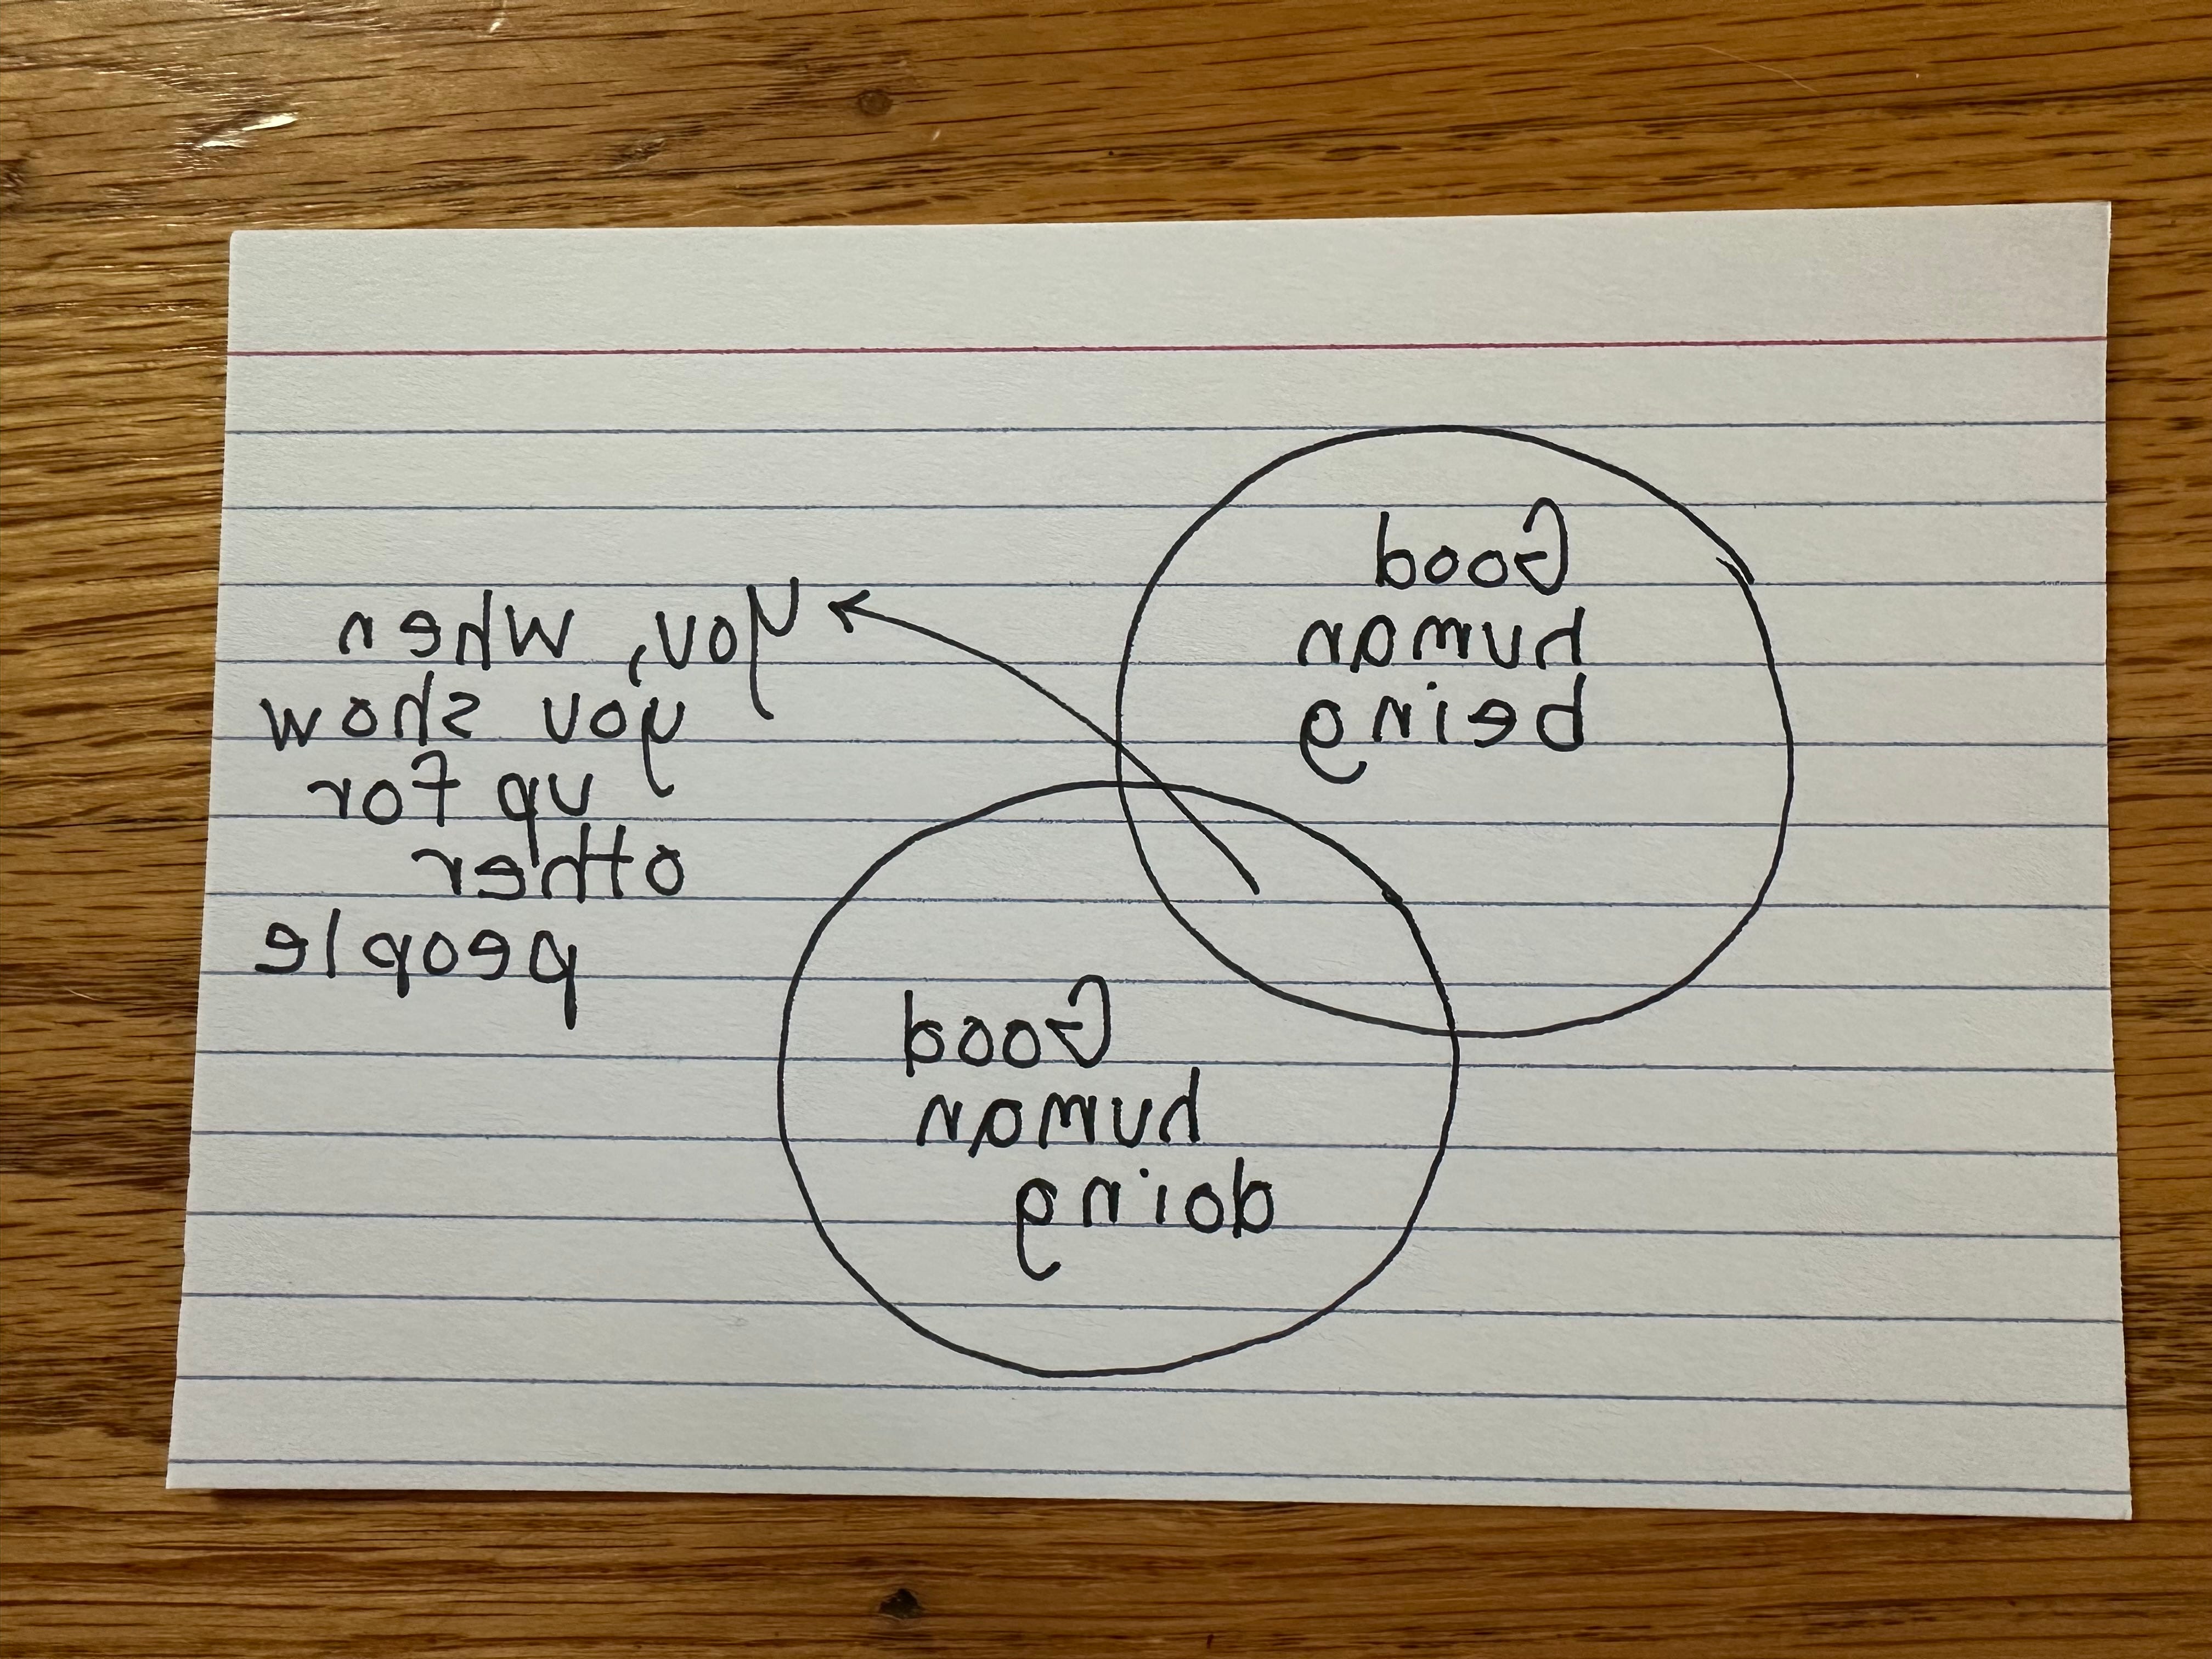 Good
human
being
You, when
you show
up for
other
people
Good
human
doing